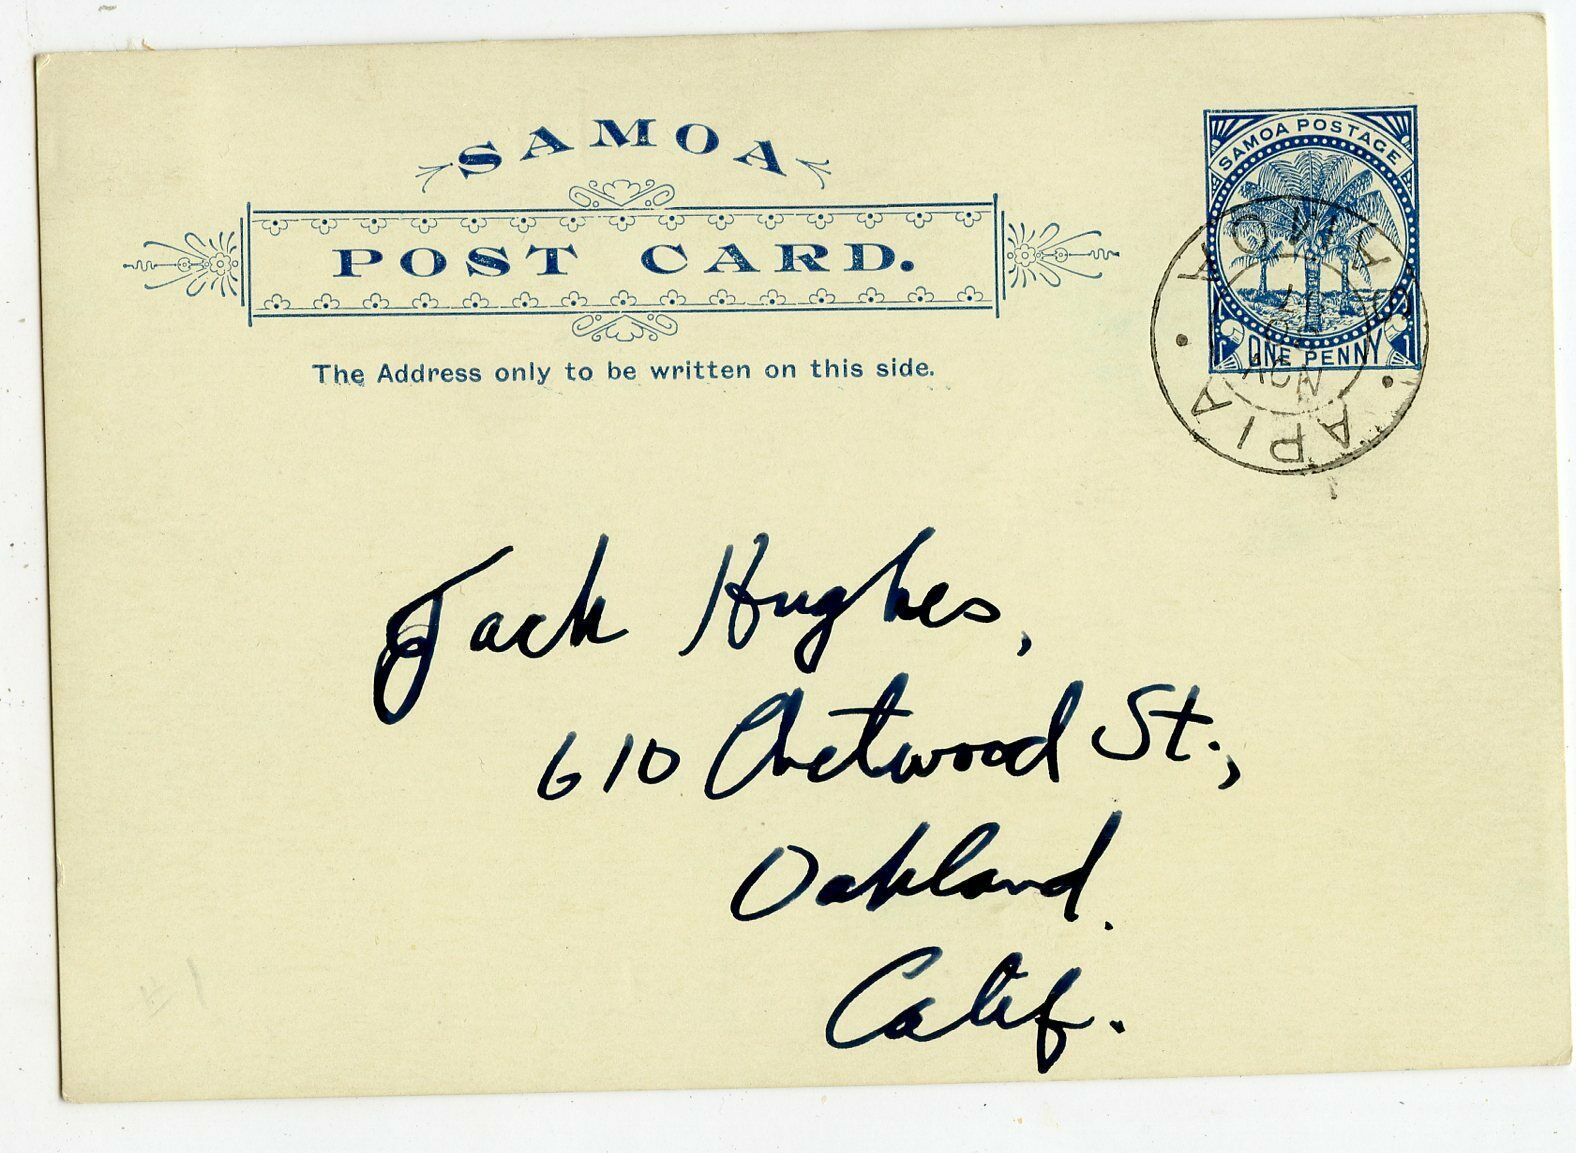 SAMOA
POST CARD.
The Address only to be written on this side.
SAMOA POSTAGE
ONE PENNY
SAMOA
NOV
APIA
Jack Hughes,
610 Chetwood St.,
Oakland.
Calif.
#1